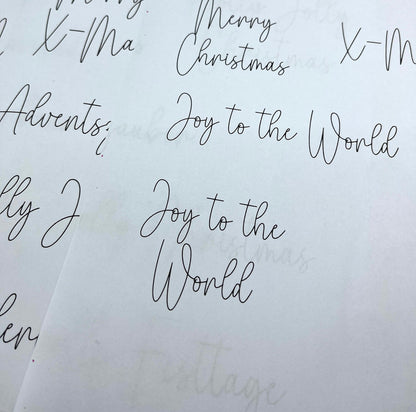 Merry
X-Ma
Merry
Christmas
X-M
Advents
Joy to the World
lly J
Joy to the
World